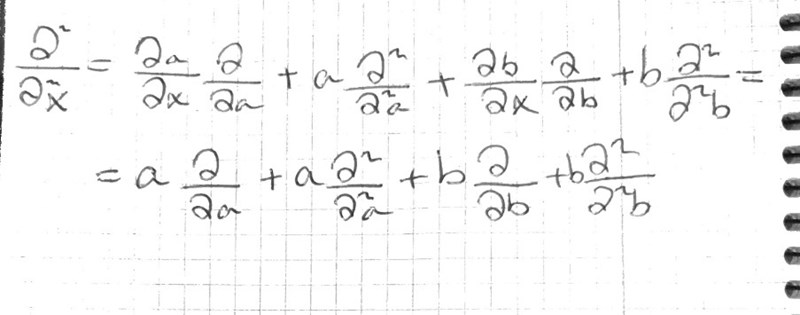 ∂²/∂²x = ∂a/∂x ∂/∂a + a ∂²/∂²a + ∂b/∂x ∂/∂b + b ∂²/∂²b =
= a ∂/∂a + a ∂²/∂²a + b ∂/∂b + b ∂²/∂²b